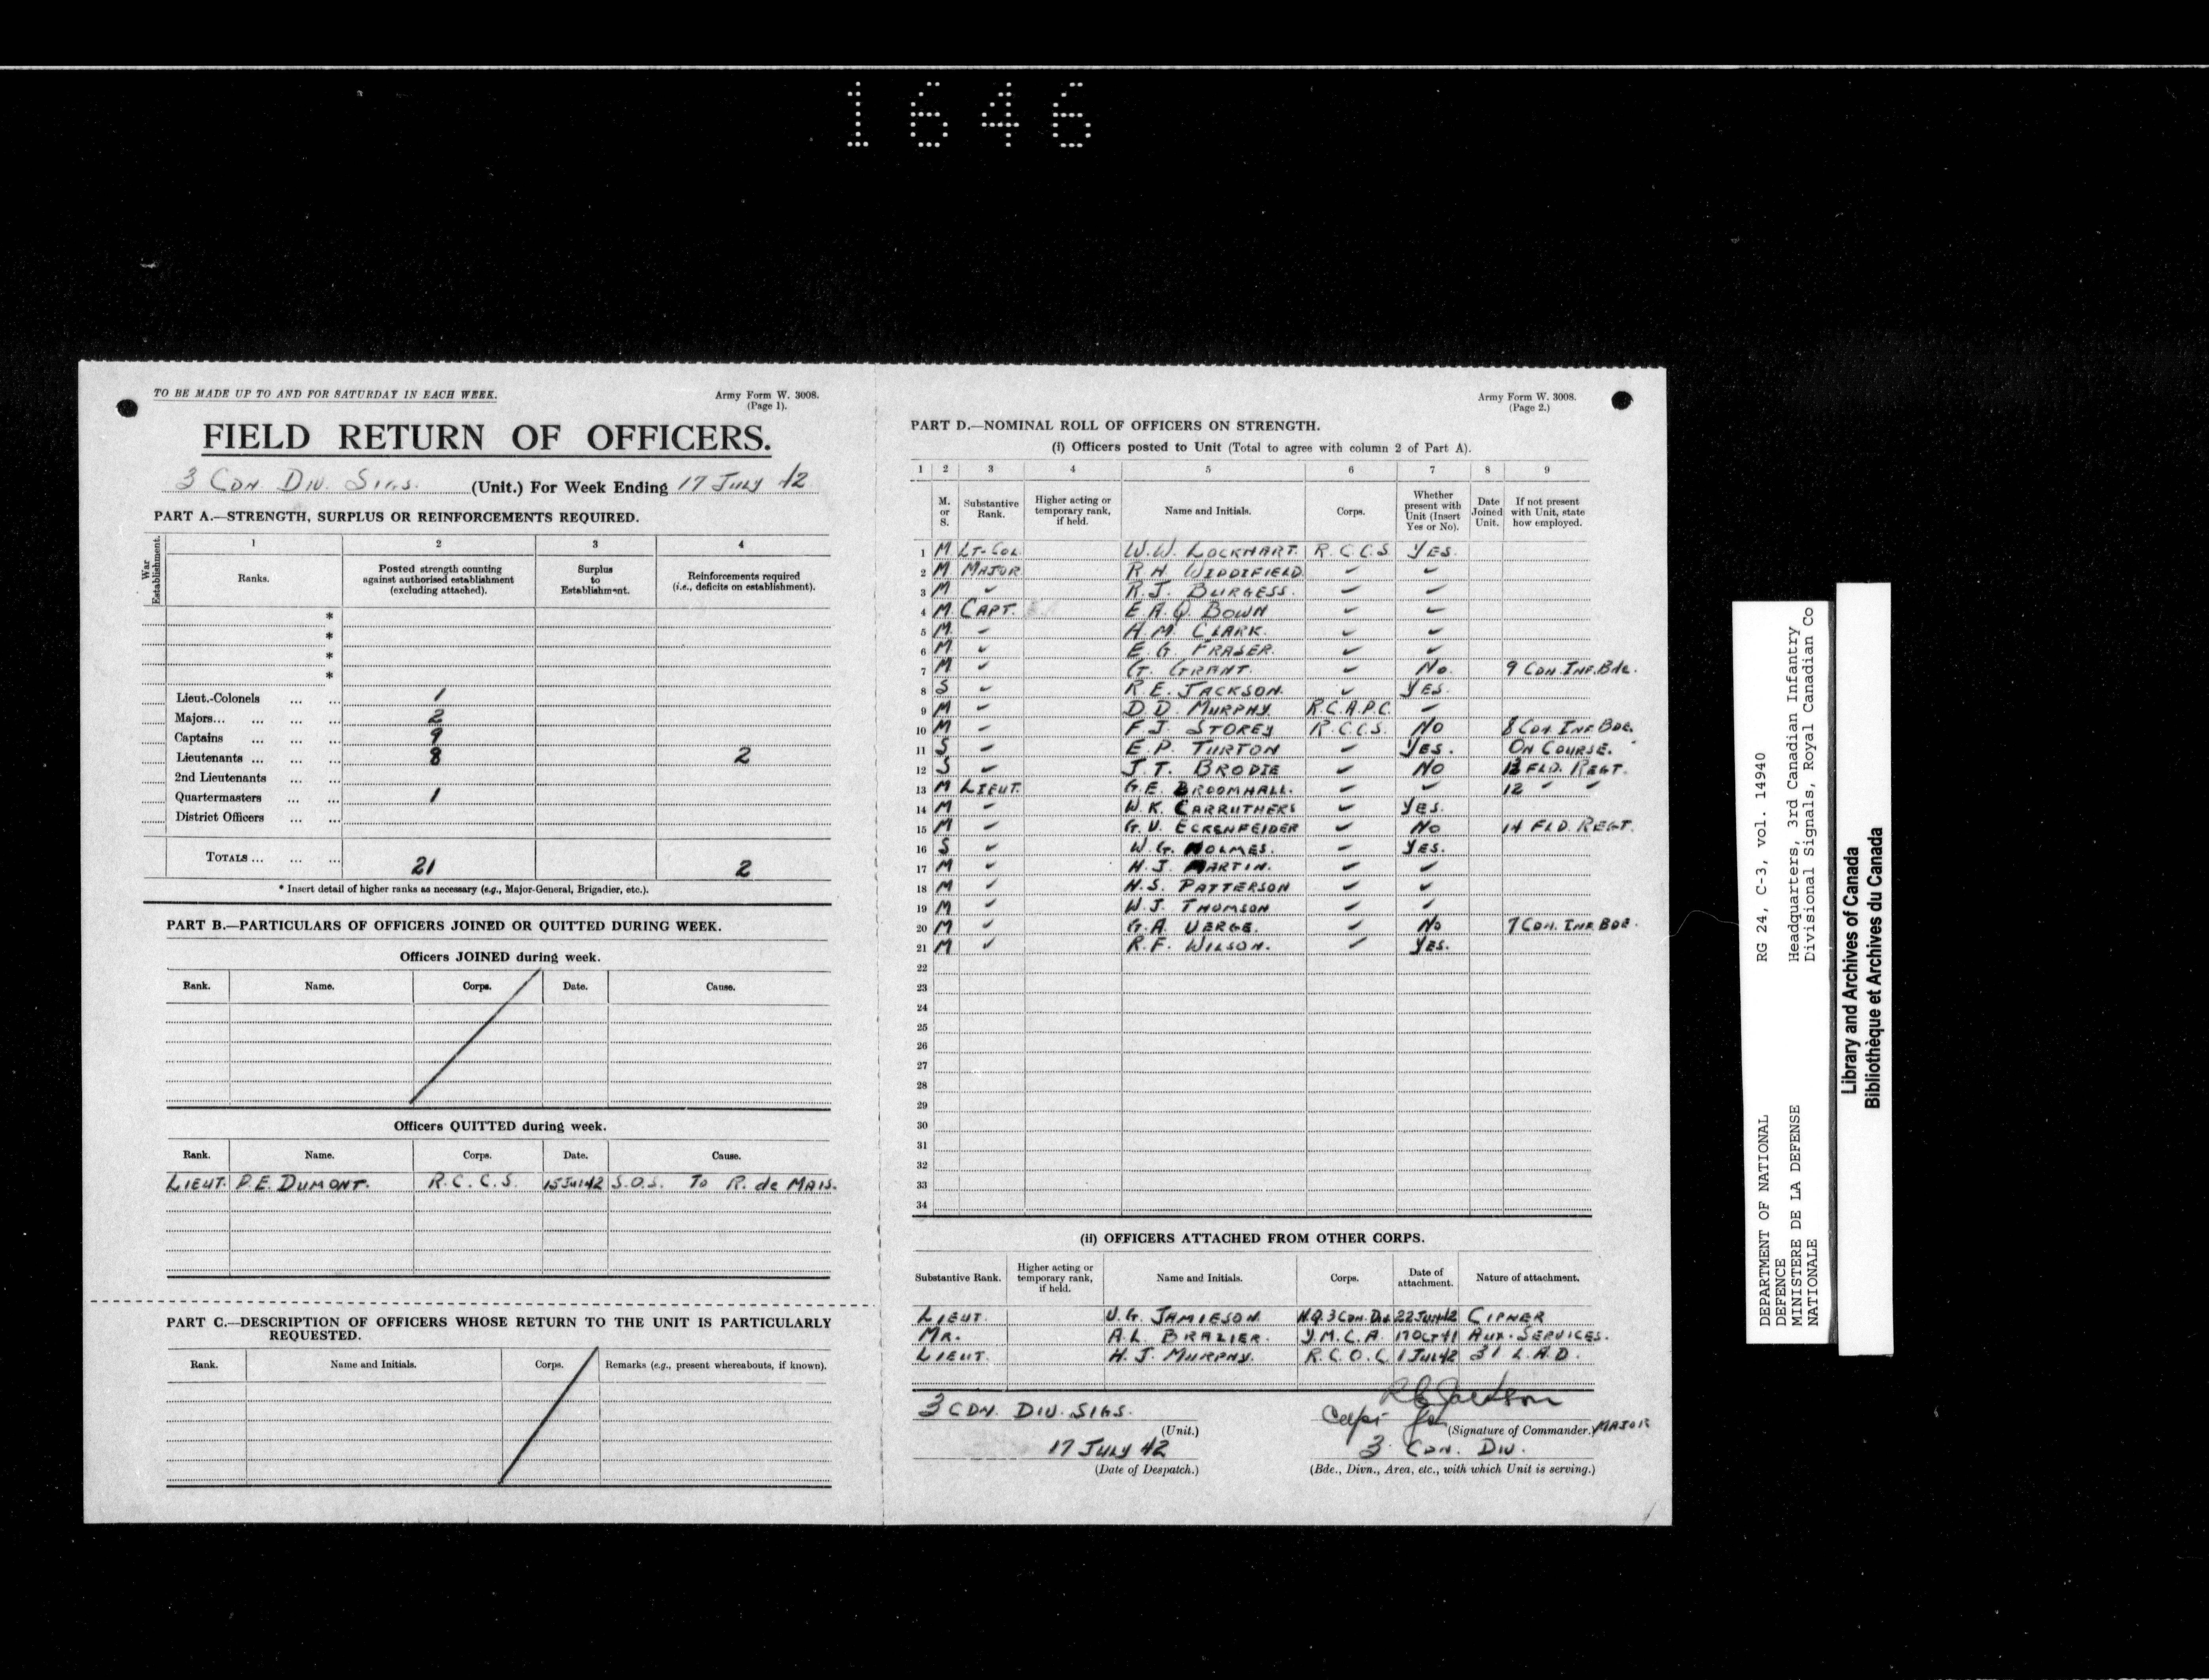 1646
TO BE MADE UP TO AND FOR SATURDAY IN EACH WEEK.
Army Form W. 3008.
(Page 1).
FIELD RETURN OF OFFICERS.
3 CDN. DIV. SIGS. (Unit.) For Week Ending 17 JULY 42
PART A.—STRENGTH, SURPLUS OR REINFORCEMENTS REQUIRED.
War Establishment.
1 2 3 4
Ranks. Posted strength counting against authorised establishment (excluding attached). Surplus to Establishment. Reinforcements required (i.e., deficits on establishment).
*
*
*
*
Lieut.-Colonels ... ... 1
Majors... ... ... ... 2
Captains ... ... ... 9
Lieutenants ... ... ... 8 2
2nd Lieutenants ... ...
Quartermasters ... ... 1
District Officers ... ...
TOTALS ... ... ... 21 2
* Insert detail of higher ranks as necessary (e.g., Major-General, Brigadier, etc.).
PART B.—PARTICULARS OF OFFICERS JOINED OR QUITTED DURING WEEK.
Officers JOINED during week.
Rank. Name. Corps. Date. Cause.
Officers QUITTED during week.
Rank. Name. Corps. Date. Cause.
LIEUT. P.E. DUMONT. R.C.C.S. 15 Jul 42 S.O.S. To R. de MAIS.
PART C.—DESCRIPTION OF OFFICERS WHOSE RETURN TO THE UNIT IS PARTICULARLY
REQUESTED.
Rank. Name and Initials. Corps. Remarks (e.g., present whereabouts, if known).
Army Form W. 3008.
(Page 2.)
PART D.—NOMINAL ROLL OF OFFICERS ON STRENGTH.
(i) Officers posted to Unit (Total to agree with column 2 of Part A).
1 2 3 4 5 6 7 8 9
M. or S. Substantive Rank. Higher acting or temporary rank, if held. Name and Initials. Corps. Whether present with Unit (Insert Yes or No). Date Joined Unit. If not present with Unit, state how employed.
1 M LT-COL. W.W. LOCKHART. R.C.C.S. YES.
2 M MAJOR R.H. WIDDIFIELD ✓ ✓
3 M ✓ R.J. BURGESS. ✓ ✓
4 M. CAPT. E.A.Q. BOWN ✓ ✓
5 M. ✓ H.M. CLARK. ✓ ✓
6 M ✓ E.G. FRASER. ✓ ✓
7 M ✓ G. GRANT. ✓ No. 9 CDN. INF. BDE.
8 S ✓ R.E. JACKSON. ✓ YES.
9 M ✓ D.D. MURPHY R.C.A.P.C. ✓
10 M ✓ F.J. STOREY R.C.C.S. NO 8 CDN. INF. BDE.
11 S ✓ E.P. TURTON ✓ YES. ON COURSE.
12 S ✓ J.T. BRODIE ✓ NO 13 FLD. REGT.
13 M LIEUT. G.E. BROOMHALL. ✓ ✓ 12 ✓ ✓
14 M ✓ W.K. CARRUTHERS ✓ YES.
15 M ✓ G.V. ECKENFELDER ✓ No 14 FLD. REGT.
16 S ✓ W.G. HOLMES. ✓ YES.
17 M ✓ H.J. MARTIN. ✓ ✓
18 M ✓ H.S. PATTERSON ✓ ✓
19 M ✓ W.J. THOMSON ✓ ✓
20 M ✓ G.A. VERGE. ✓ No 7 CDN. INF. BDE.
21 M ✓ R.F. WILSON. ✓ YES.
22
23
24
25
26
27
28
29
30
31
32
33
34
(ii) OFFICERS ATTACHED FROM OTHER CORPS.
Substantive Rank. Higher acting or temporary rank, if held. Name and Initials. Corps. Date of attachment. Nature of attachment.
LIEUT. V.G. JAMIESON H.Q. 3 CDN. DIV. 22 Jun 42 CIPHER
MR. A.L. BRAZIER. Y.M.C.A. 17 Oct 41 AUX. SERVICES.
LIEUT. H.J. MURPHY. R.C.O.C. 1 Jul 42 31 L.A.D.
3 CDN. DIV. SIGS. R E Jackson
(Unit.) Capt for (Signature of Commander.) MAJOR
17 JULY 42 3 CDN. DIV.
(Date of Despatch.) (Bde., Divn., Area, etc., with which Unit is serving.)
DEPARTMENT OF NATIONAL RG 24, C-3, vol. 14940
DEFENCE
MINISTERE DE LA DEFENSE Headquarters, 3rd Canadian Infantry
NATIONALE Divisional Signals, Royal Canadian Co
Library and Archives of Canada
Bibliothèque et Archives du Canada